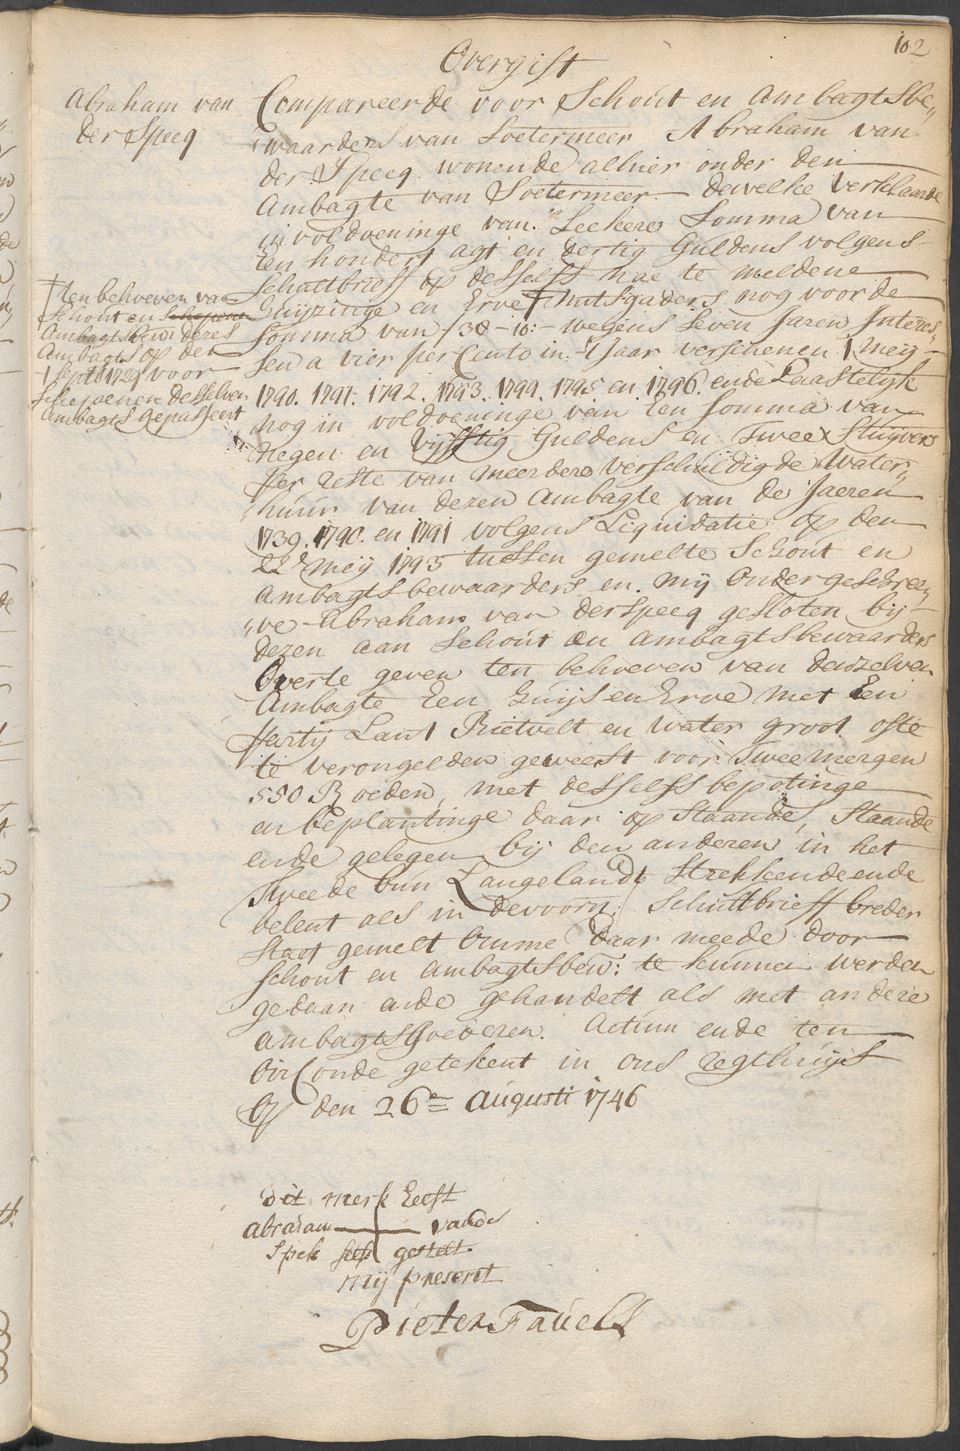 102
Overgift
Abraham van
der Speeq
Compareerde voor Schout en Ambagtsbe„
„waarders van Soetermeer Abraham van
der Speeq wonende alhier onder den
Ambagte van Soetermeer dewelke verklaarde
in voldoeninge van Seekere Somma van
Een hondert agt en dertig Guldens volgens
Schultbrieff op desselfs nae te meldene
Huijzinge en Erve † mitsgaders nog voor de
Somma van f 38-10:- wegens Seven Jaren Interes„
sen a vier per Cento in 't Jaar verschenen 1 Meij
1740. 1741. 1742. 1743. 1744. 1745 en 1746. ende Laastelijk
nog in voldoeninge van een Somma van
negen en vijfftig Guldens en Twee Stuijvers
per reste van meerdere verschuldigde Water„
„huur van dezen Ambagte van de Jaeren
1739. 1740. en 1741 volgens Liquidatie op den
22e meij 1743 tussen gemelte Schout en
Ambagtsbewaarders en mij ondergeschree„
„ve Abraham van der Speeq gesloten bij
dezen aan Schout en Ambagtsbewaarders
Over te geven ten behoeven van denzelven
Ambagte Een Huijs en Erve met Een
partij Lant Rietvelt en Water groot ofte
te verongelden geweest voor Twee mergen
550 Roeden, met desselfs bepotinge
en beplantinge daar op Staande, Staande
ende gelegen bij den anderen in het
Tweede bun Langelandt Strekkende ende
belent als in devoorn. Schultbrieff breder
Staat gemelt Omme daar meede door
Schout en Ambagtsbew: te kunnen werden
gedaan ende gehandelt als met andere
Ambagts Goederen. Actum ende ten
Oirconde getekent in ons regthuijs
Op den 26en Augusti 1746
† ten behoeven van
Schout en Schepenen
Ambagtsbew: dezes
Ambagts op den
1 Sept 1729 voor
Schepenen desselven
Ambagts Gepasseert
Dit merk heeft
Abraham vande
Spek selfs gestelt.
mij present
Pieter Favell